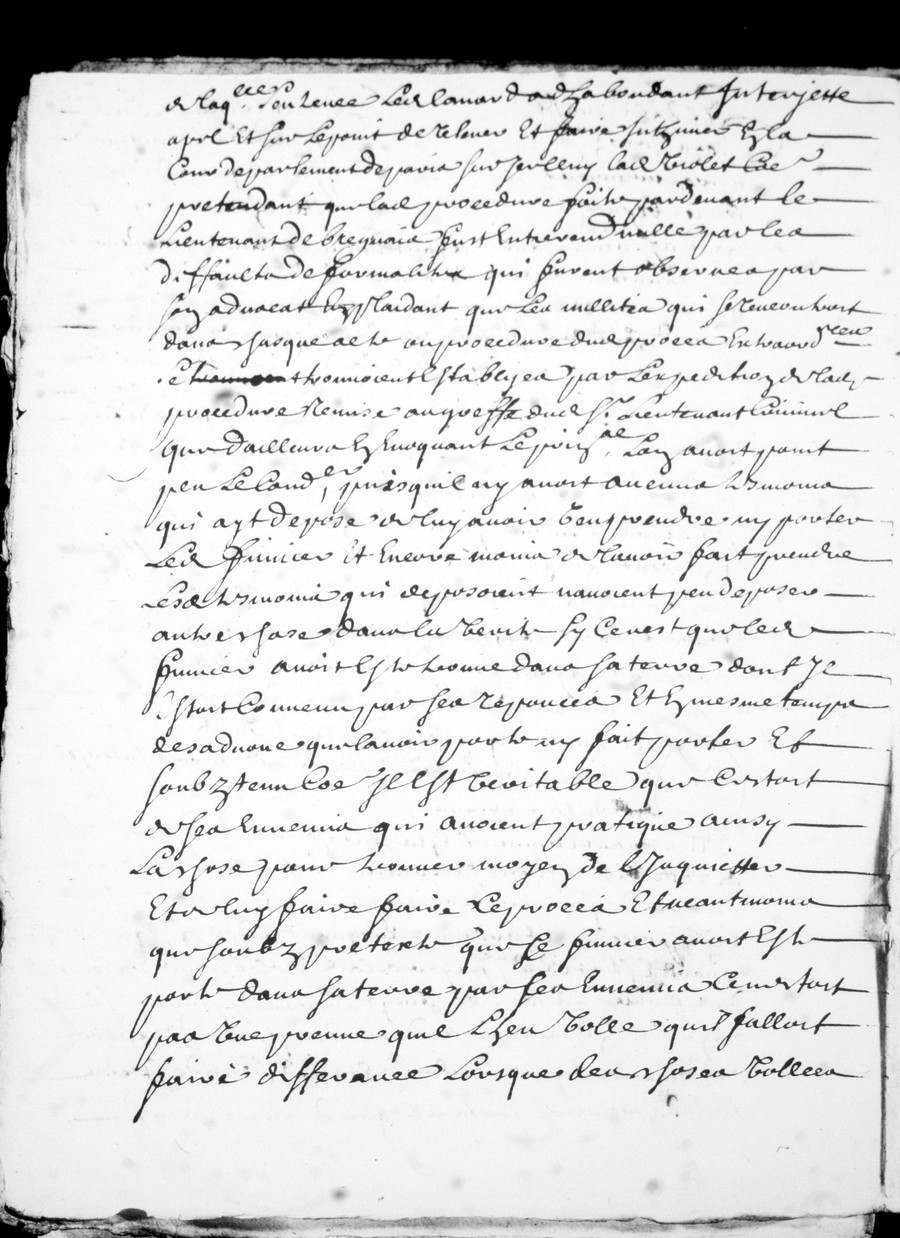 de laq.elle sentence led lanard ad habondant Interjette
apel Et sur le point de relever Et faire Inthimer En la
Cour de parlement de paris sur
pretendant que lad procedure faite pardevant le
Lieutenant de fust Entierem nulle par les
diffaults de formalités qui furent observes par
son advocat En plaidant que les nullites qui se rencontroit
dans jusque a cete procedure dud proces Extraord.res
se trouvoient Establyes par Lexpedition de lad
procedure remise au greffe dud Sr. Lieutenant Criminel
que dailleurs En Evoquant Le prin.al Lon avoit point
peu Le Cond.er, puisquil ny avoit aucuns tesmoins
qui ayt depose de luy avoir veu prendre ny porter
Led fumier Et Encore moins de lavoir fait prendre
Lesd tesmoins qui deposoient navoient peu deposer
autre chose dans la verite sy Ce nest que led
fumier avoit Este trouve dans sa terre dont Il
Estoit Convenu par ses reponces Et En mesme temps
desadvoue que lavoir porte ny fait porter Et
soubztenu Coe Il Est veritable que Cestoit
de ses Ennemis qui avoient pratique ainsy
La chose pour trouver moyen de L Inquietter
Et de luy faire faire Le proces Et neantmoins
que soubz pretexte que Le fumier avoit Este
porte dans sa terre par ses Ennemis Ce nestoit
pas une preuve quil L eu volle quil falloit
faire differance Lorsque des choses vollees